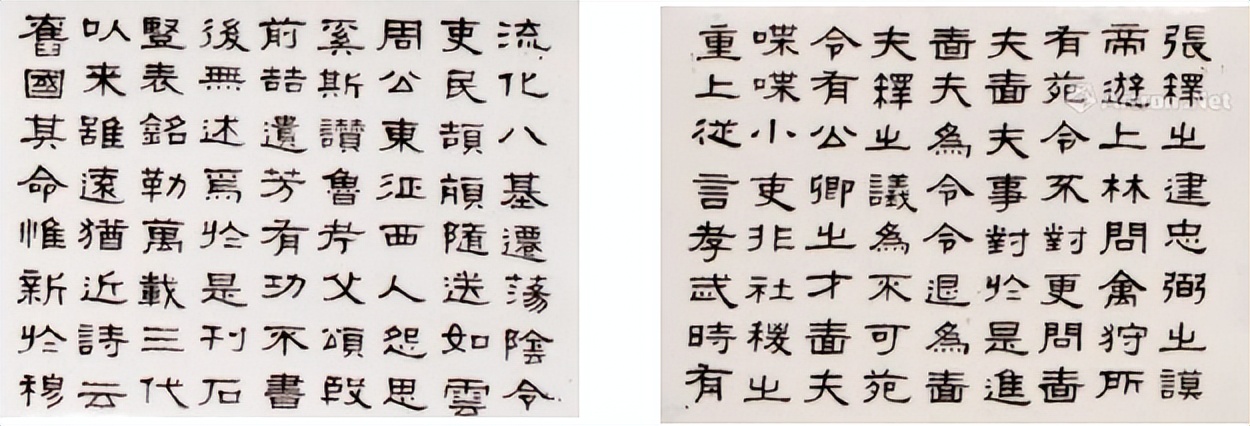 張釋之建忠弼之謨
帝遊上林問禽狩所
有苑令不對更問嗇
夫嗇夫事對於是進
嗇夫為令令退為嗇
夫釋之議為不可苑
令有公卿之才嗇夫
喋喋小吏非社稷之
重上從言孝武時有
流化八基遷蕩陰令
吏民頡頏隨送如雲
周公東征西人怨思
奚斯讚魯考父頌殷
前喆遺芳有功不書
後無述焉於是刊石
豎表銘勒萬載三代
以来雖遠猶近詩云
舊國其命惟新於穆